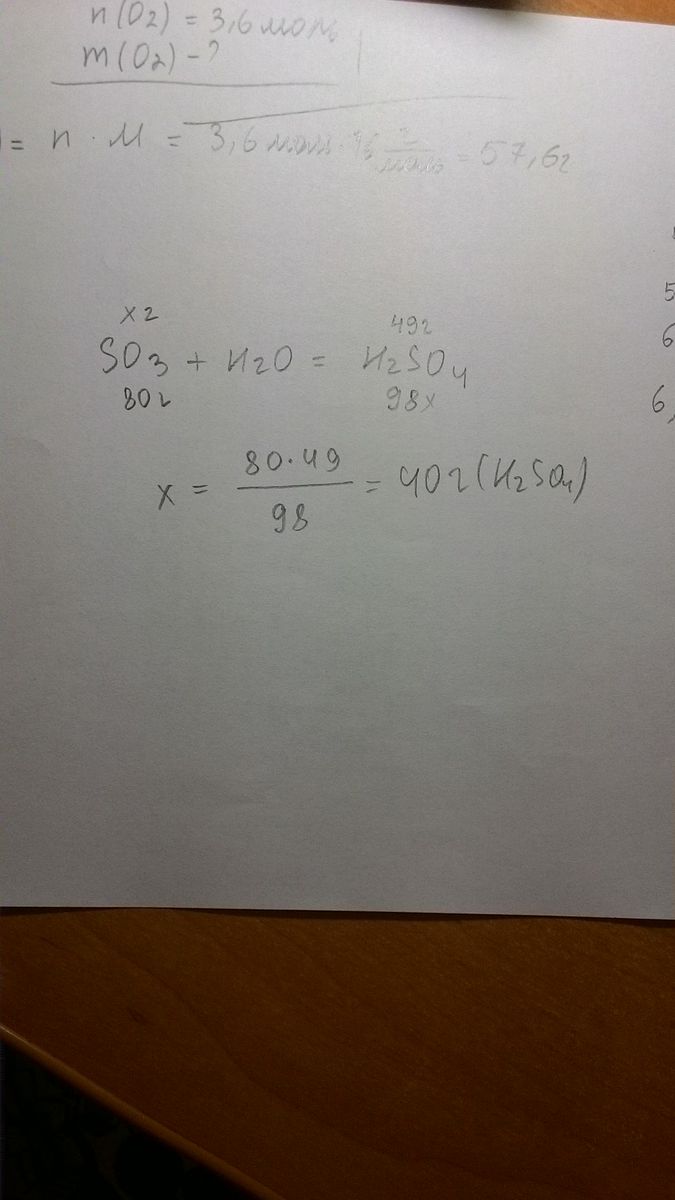 n(O2) = 3,6 моль
m(O2) - ?
= n · M = 3,6 моль · 16 г/моль = 57,6г
x г
49г
SO3 + H2O = H2SO4
80г
98г
x = 80·49/98 = 40г (H2SO4)
5
6
6,